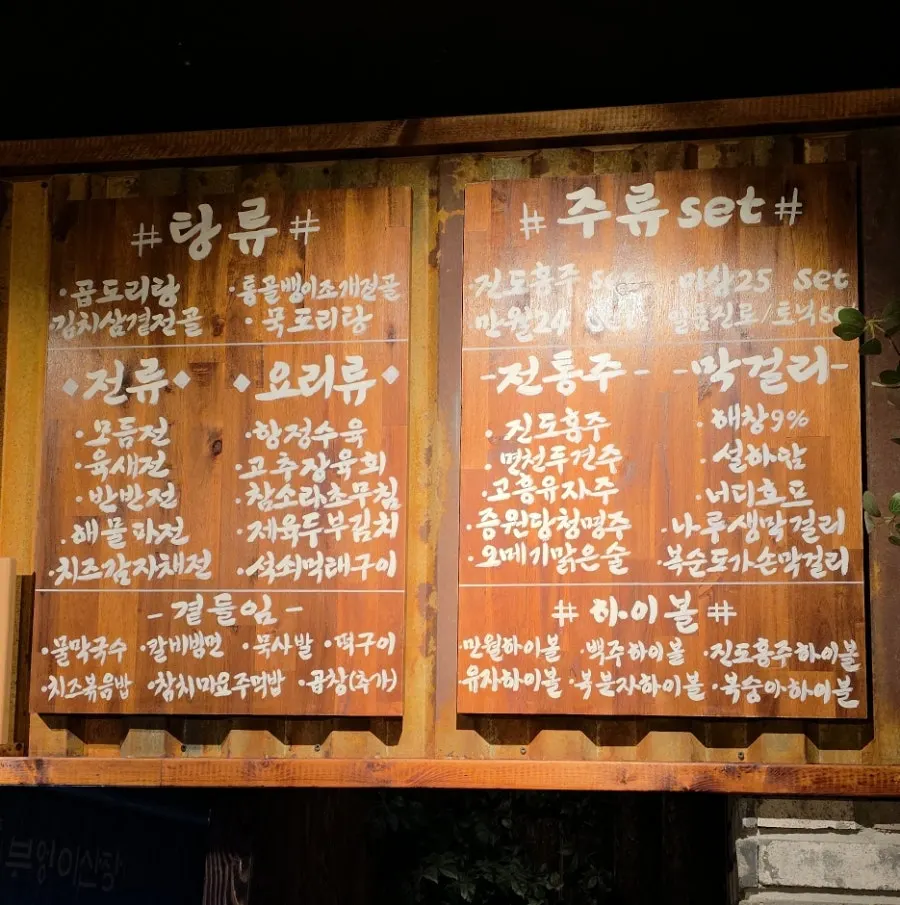 #탕류#
·곱도리탕 ·통골뱅이조개전골
·김치삼겹전골 ·묵도리탕
◆전류◆ ◆요리류◆
·모듬전 ·항정수육
·육새전 ·고추장육회
·반반전 ·참소라초무침
·해물파전 ·제육두부김치
·치즈감자채전 ·석쇠먹태구이
-곁들임-
·물막국수 ·칼비빔면 ·묵사발 ·떡구이
·치즈볶음밥 ·참치마요주먹밥 ·곱창(추가)
#주류set#
진도홍주 set 미상25 set
만월24 set 일품진로/토닉
-전통주- -막걸리-
·진도홍주 ·해창9%
·면천두견주 ·설하담
·고흥유자주 ·너디호프
·중원당청명주 ·나루생막걸리
·오메기맑은술 ·복순도가손막걸리
#하이볼#
·만월하이볼 ·백주하이볼 ·진도홍주하이볼
·유자하이볼 ·복분자하이볼 ·복숭아하이볼
부엉이산장